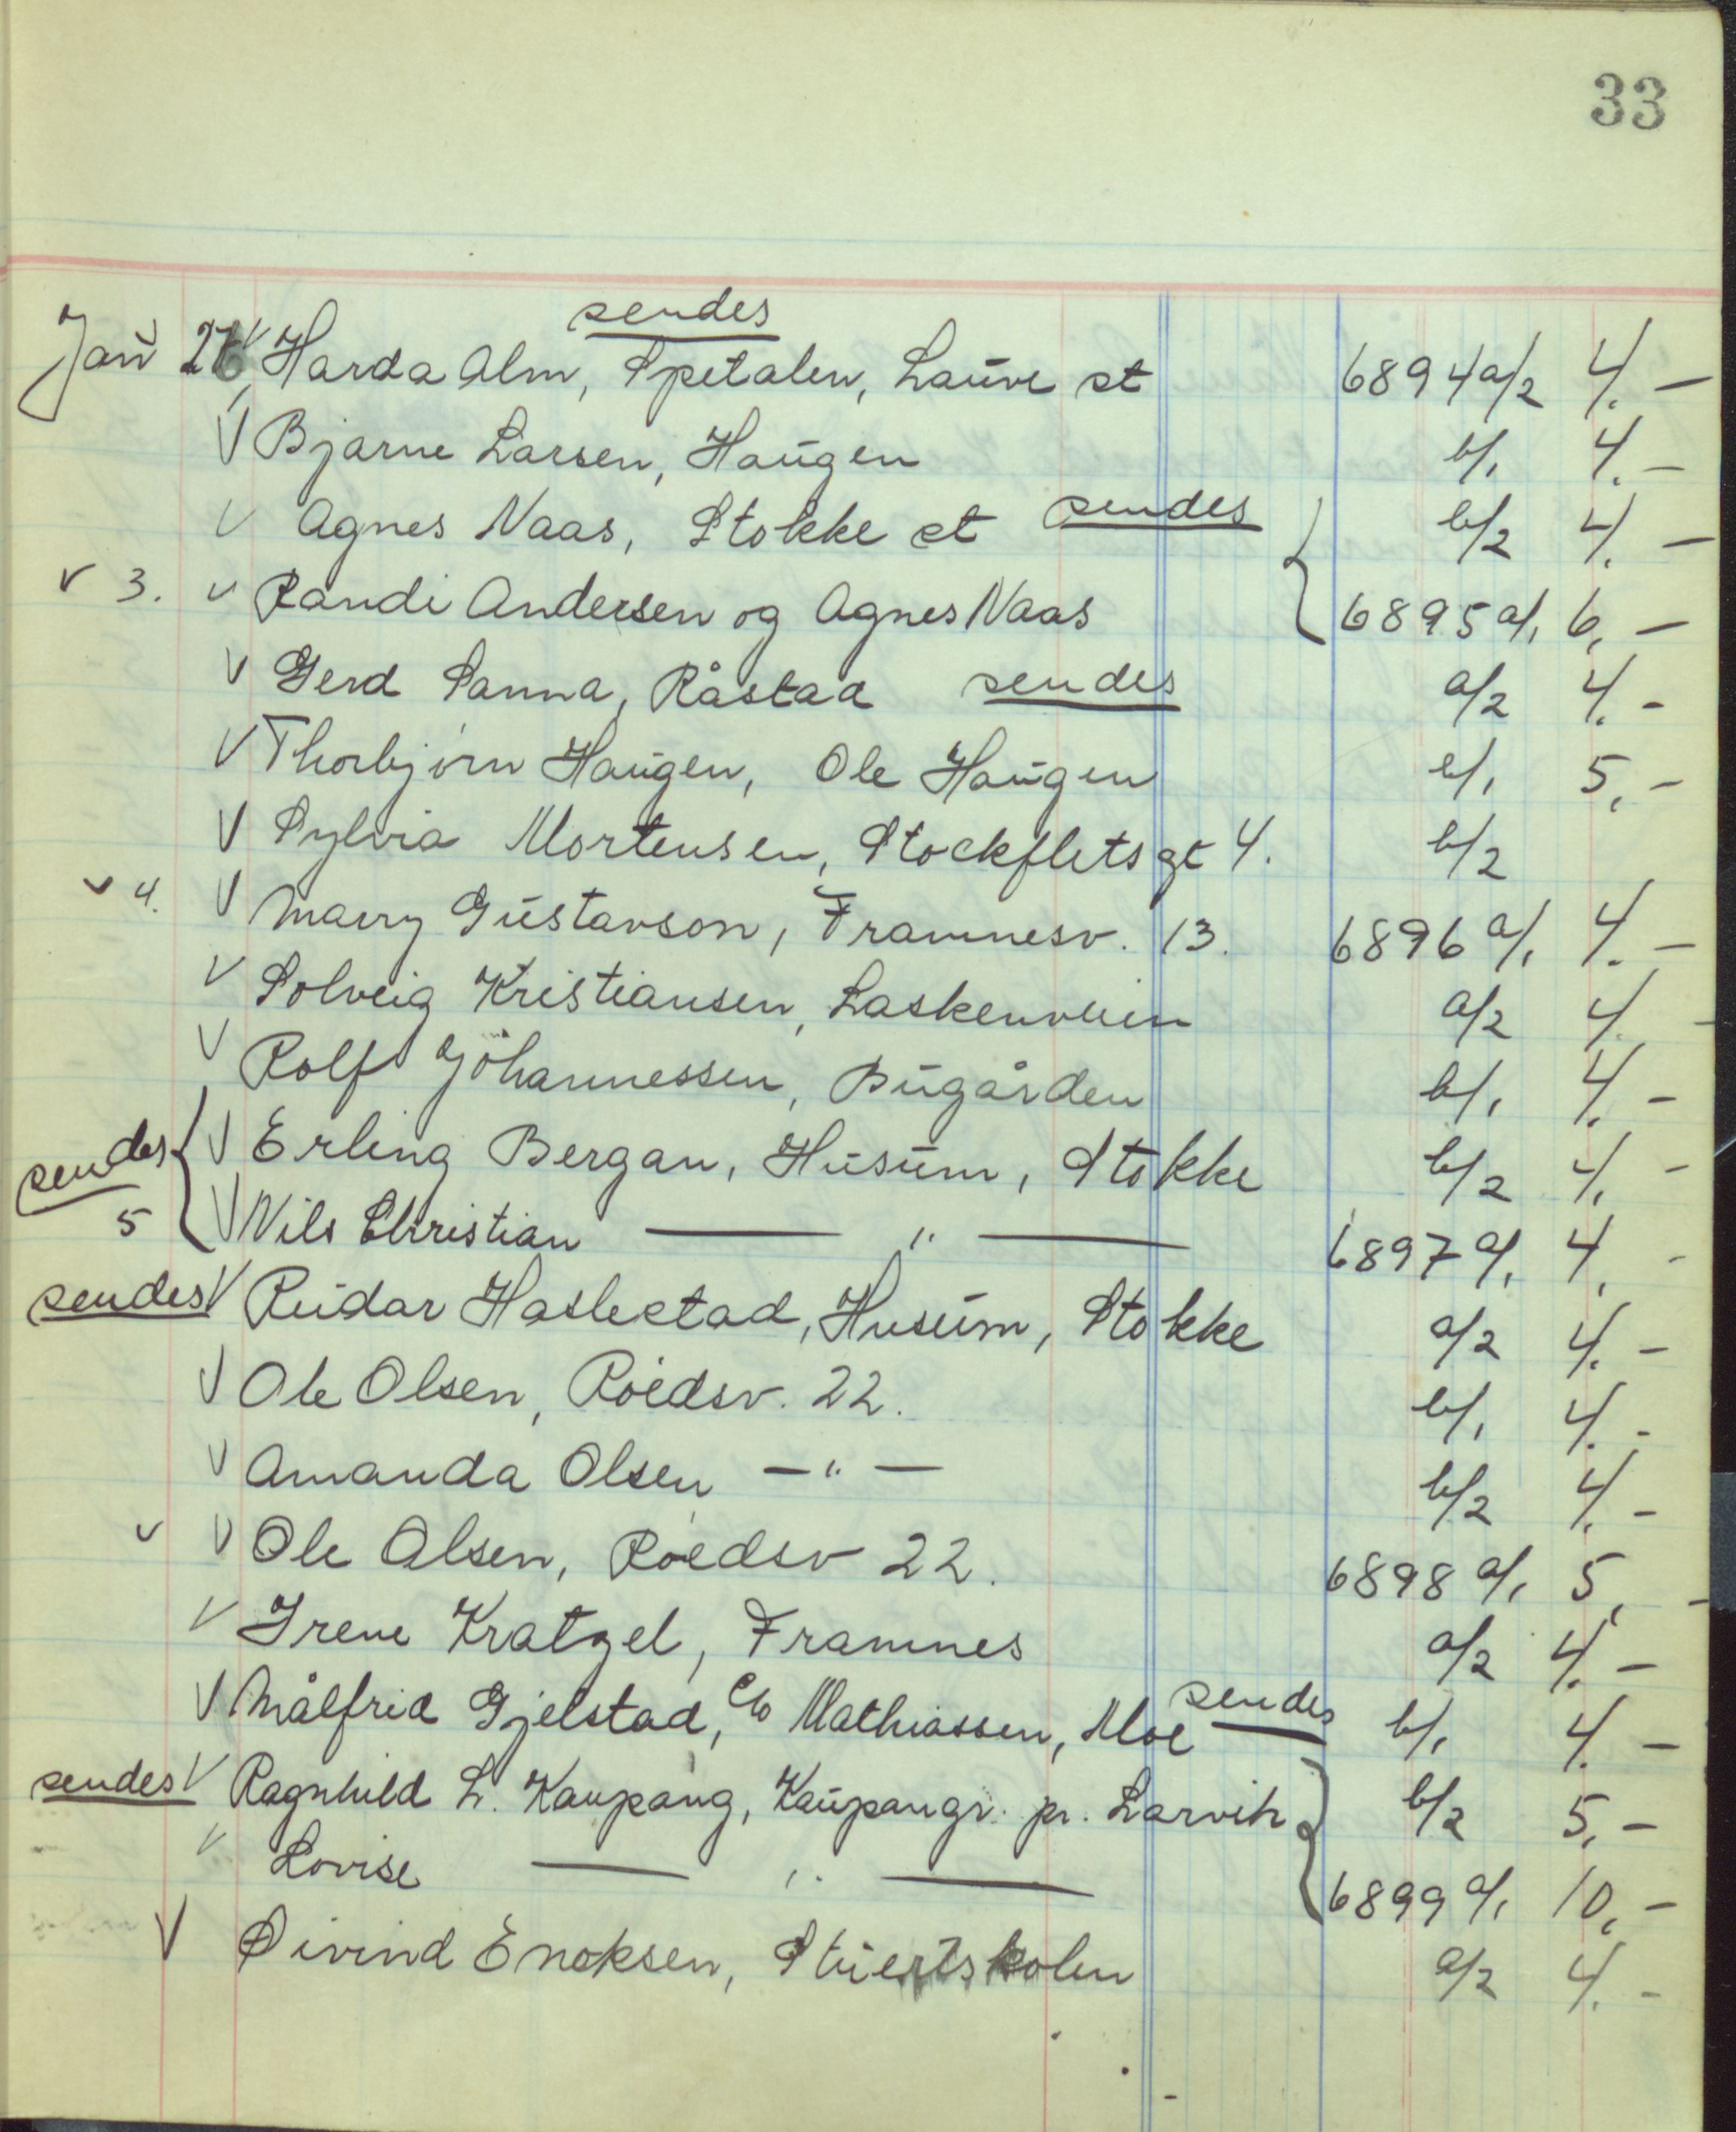 33
sendes
Jan 2 Harda Alm, Spetalen, Lauve st 6894 a/2 4. —
V Bjarne Larsen, Haugen b/1 4. —
V Agnes Naas, Stokke st sendes b/2 4. —
v 3. v Randi Andersen og Agnes Naas 6895 a/1 6, —
V Gerd Sanna, Råstad sendes a/2 4. -
V Thorbjørn Haugen, Ole Haugen b/1 5, -
V Sylvia Mortensen, Stockfletsgt 4. b/2
v 4. V Marry Gustavson, Framnesv. 13. 6896 a/1 4. —
V Solveig Kristiansen, Laskenveien a/2 4 -
V Rolf Johannessen, Bugården b/1 4. -
sendes V Erling Bergan, Husum, Stokke b/2 4, -
5 V Nils Christian — " — 6897 a/1 4, -
sendes V Reidar Haslestad, Husum, Stokke a/2 4. -
V Ole Olsen, Roedsv. 22. b/1 4. -
V Amanda Olsen — " — b/2 4. -
v V Ole Olsen, Roedsv 22. 6898 a/1 5, -
V Irene Kratzel, Framnes a/2 4. —
V Målfrid Gjelstad, c/o Mathiassen, Moe sendes b/1 4. —
sendes V Ragnhild L. Kaupang, Kaupangr. pr. Larvik b/2 5, —
V Lovise — " — 6899 a/1 10, —
V Øivind Enoksen, Stuertskolen a/2 4. -